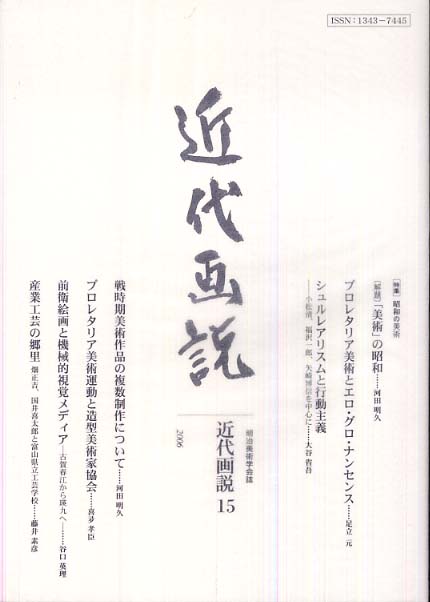 ISSN：1343−7445
近代画説
［特集］ 昭和の美術
［解題］「美術」の昭和……河田 明久
プロレタリア美術とエロ・グロ・ナンセンス……足立 元
シュルレアリスムと行動主義
――小松清、福沢一郎、矢崎博信を中心に……大谷 省吾
明治美術学会誌
近代画説 15
2006
戦時期美術作品の複数制作について……河田 明久
プロレタリア美術運動と造型美術家協会……喜多 孝臣
前衛絵画と機械的視覚メディア――古賀春江から瑛九へ――……谷口 英理
産業工芸の郷里 畑正吉、国井喜太郎と富山県立工芸学校……藤井 素彦